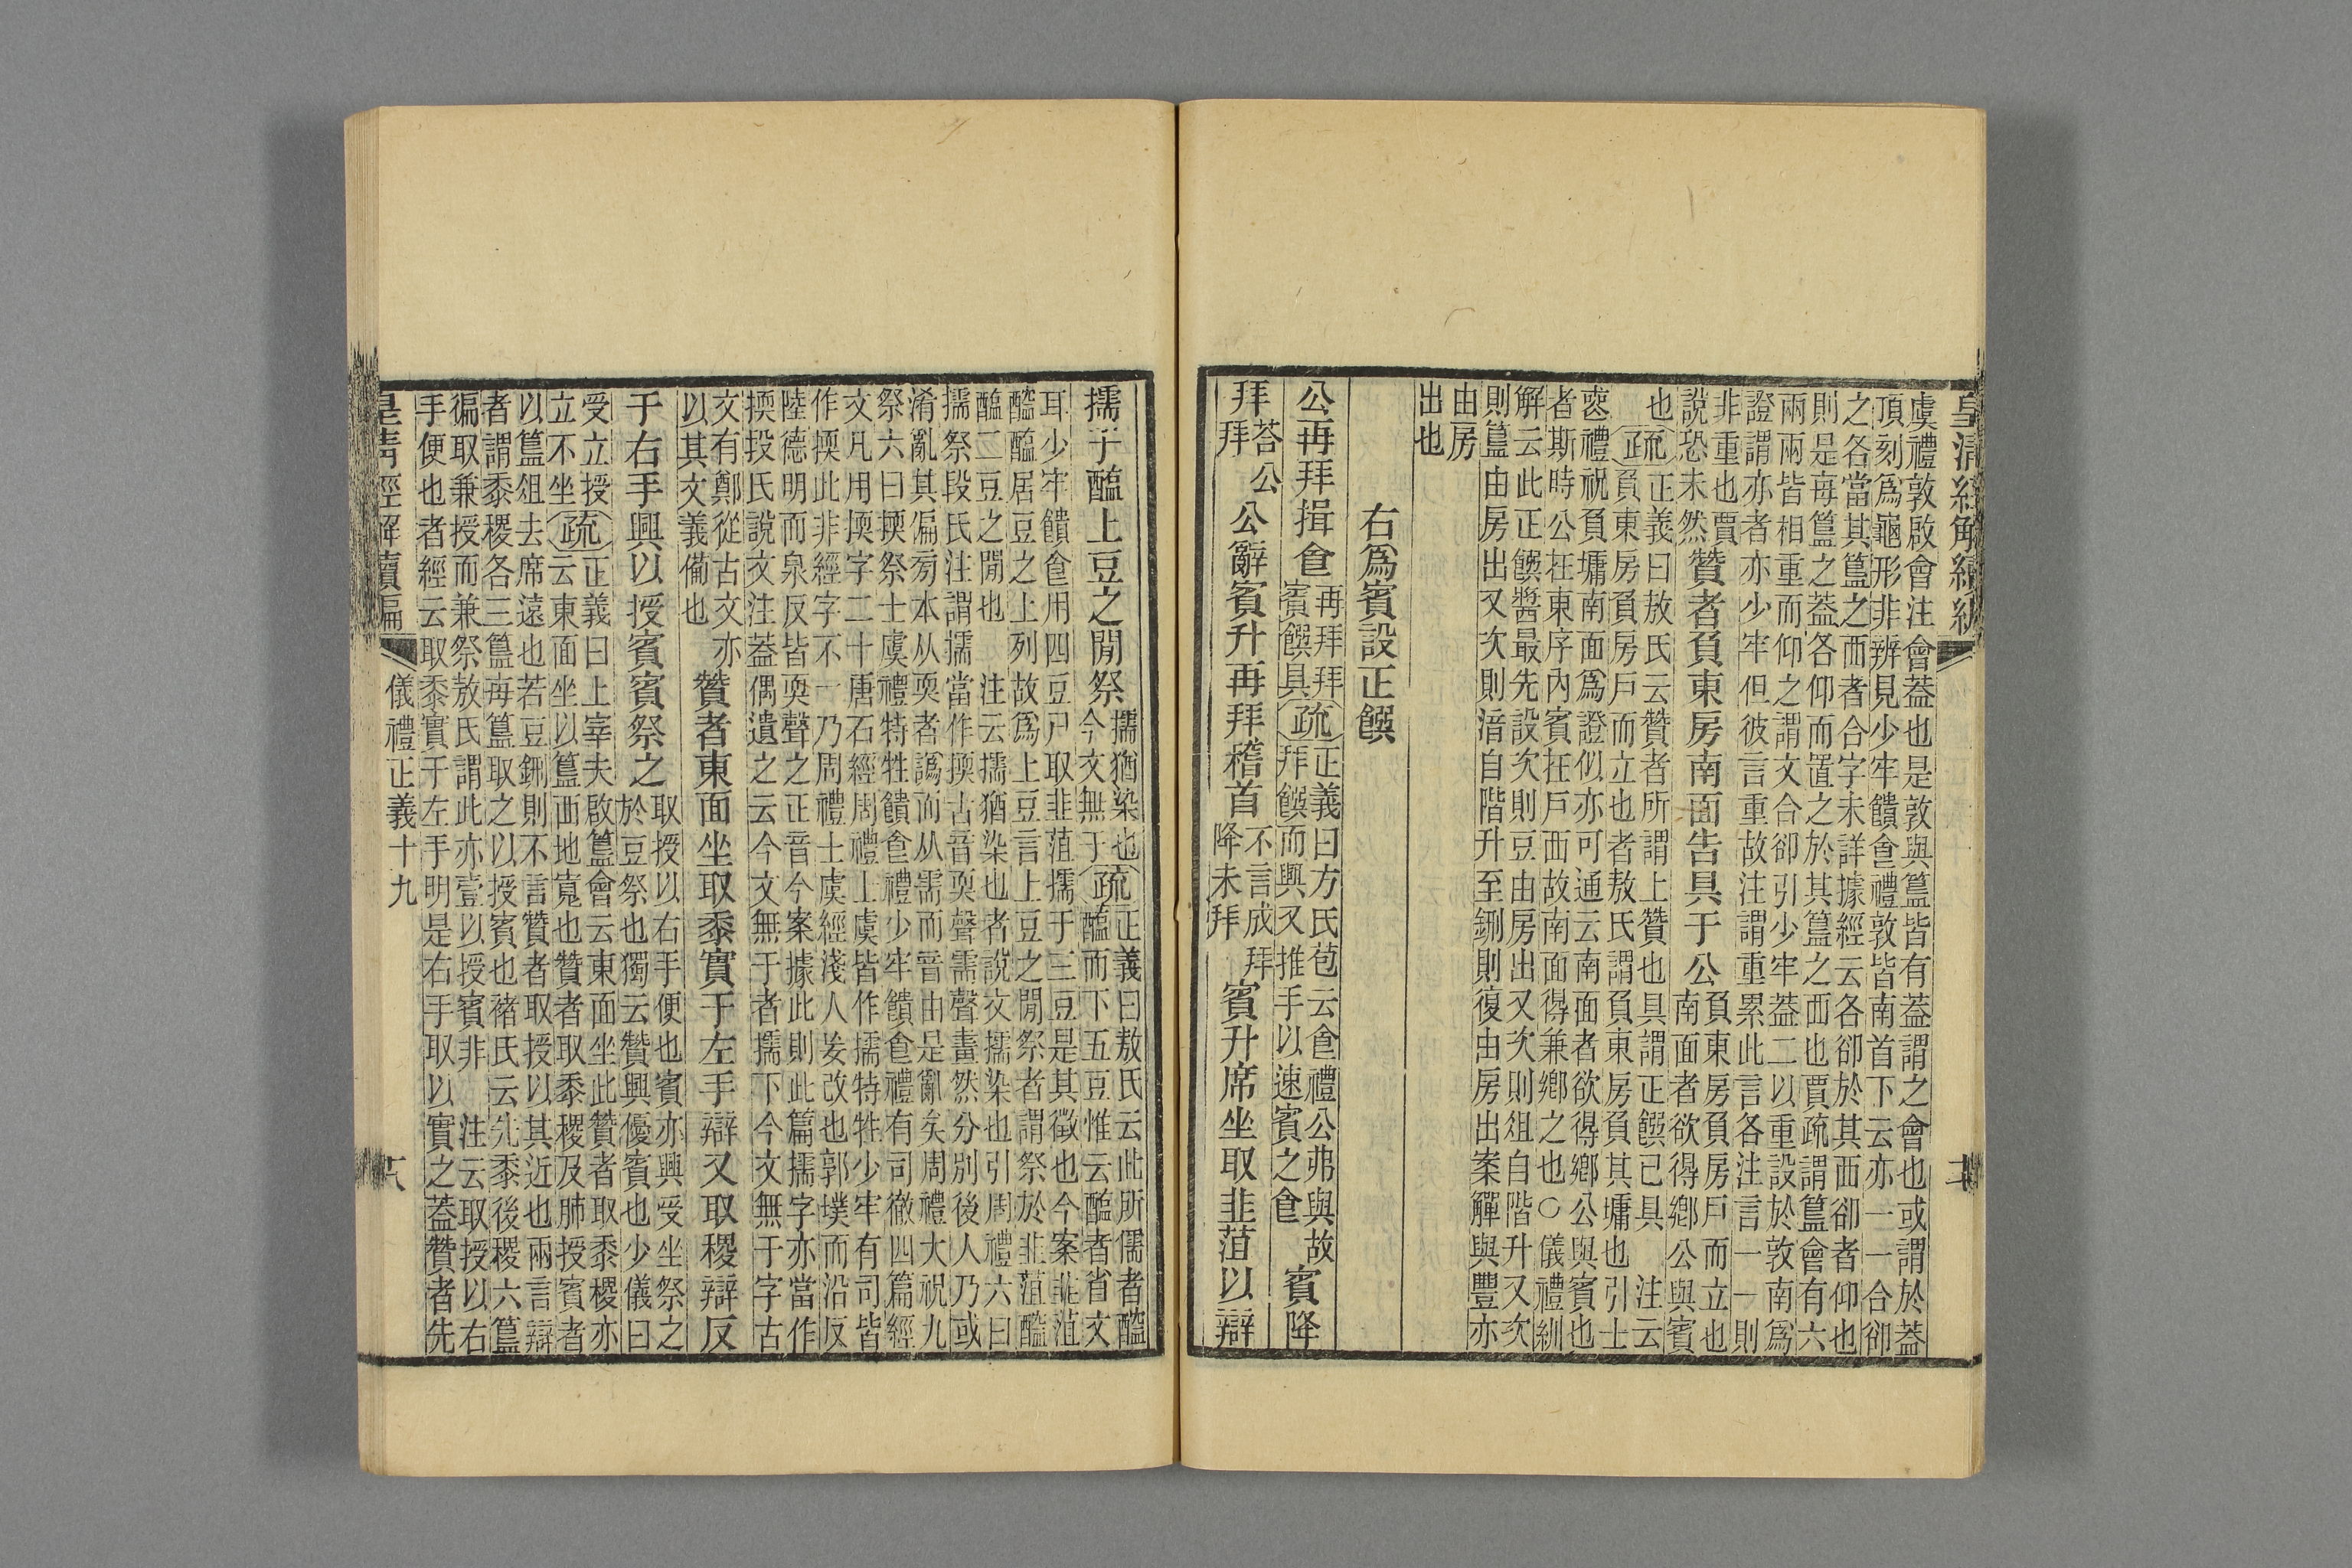 皇清經解續編
虞禮敦啟會注會蓋也是敦與簋皆有蓋謂之會也或謂於蓋
頂刻爲龜形非辨見少牢饋食禮敦皆南首下云亦一一合卻
之各當其簋之西者合字未詳據經云各卻於其西卻者仰也
則是每簋之蓋各仰而置之於其簋之西也賈疏謂簋會有六
兩兩皆相重而仰之謂文合卻引少牢蓋二以重設於敦南爲
證謂亦者亦少牢但彼言重故注謂重累此言各注言一一則
非重也賈
說恐未然
贊者負東房南面告具于公
負東房負房戶而立也
南面者欲得鄉公與賓
也
疏
正義曰敖氏云贊者所謂上贊也具謂正饌已具 注云
負東房負房戶而立也者敖氏謂負東房負其墉也引士
喪禮祝負墉南面爲證似亦可通云南面者欲得鄉公與賓也
者斯時公在東序內賓在戶西故南面得兼鄉之也○儀禮紃
解云此正饌醬最先設次則豆由房出又次則俎自階升又次
則簋由房出又次則湆自階升至鉶則復由房出案觶與豐亦
由房
出也
右爲賓設正饌
公再拜揖食
再拜拜
賓饌具
疏
正義曰方氏苞云食禮公弗與故
拜饌而興又推手以速賓之食
賓降
拜
荅公
拜
公辭賓升再拜稽首
不言成拜
降未拜
賓升席坐取韭菹以辯
擩于醢上豆之閒祭
擩猶染也
今文無于
疏
正義曰敖氏云此所擩者醢
醢而下五豆惟云醢者省文
耳少牢饋食用四豆尸取韭菹擩于三豆是其徵也今案韭菹
醓醢居豆之上列故爲上豆言上豆之閒祭者謂祭於韭菹醓
醢二豆之閒也 注云擩猶染也者說文擩染也引周禮六曰
擩祭段氏注謂擩當作㨎古音耎聲需聲畫然分別後人乃或
淆亂其偏旁本从耎者譌而从需而音由是亂矣周禮大祝九
祭六曰㨎祭士虞禮特牲饋食禮少牢饋食禮有司徹四篇經
文凡用㨎字二十唐石經周禮士虞皆作擩特牲少牢有司皆
作㨎此非經字不一乃周禮士虞經淺人妄改也郭璞而沿反
陸德明而泉反皆耎聲之正音今案據此則此篇擩字亦當作
㨎投氏說文注蓋偶遺之云今文無于者擩下今文無于字古
文有鄭從古文亦
以其文義備也
贊者東面坐取黍實于左手辯又取稷辯反
于右手興以授賓賓祭之
取授以右手便也賓亦興受坐祭之
於豆祭也獨云贊興優賓也少儀曰
受立授
立不坐
疏
正義曰上宰夫啟簋會云東面坐此贊者取黍稷亦
云東面坐以簋西地寬也贊者取黍稷及肺授賓者
以簋俎去席遠也若豆鉶則不言贊者取授以其近也兩言辯
者謂黍稷各三簋每簋取之以授賓也褚氏云先黍後稷六簋
徧取兼授而兼祭敖氏謂此亦壹以授賓非 注云取授以右
手便也者經云取黍實于左手明是右手取以實之蓋贊者先
皇清經解續編
儀禮正義十九